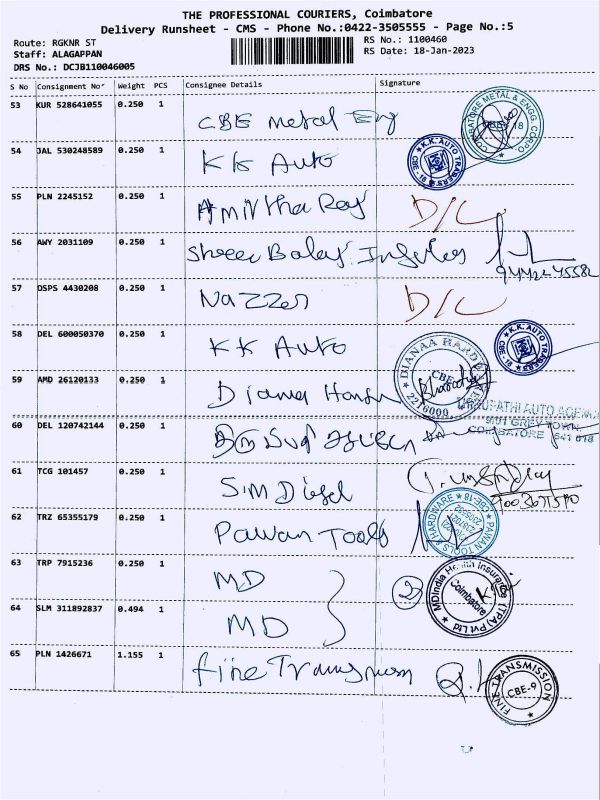 THE PROFESSIONAL COURIERS, Coimbatore
Delivery Runsheet - CMS - Phone No.:0422-3505555 - Page No.:5
Route: RGKNR ST RS No.: 1100460
Staff: ALAGAPPAN RS Date: 18-Jan-2023
DRS No.: DCJB110046005
S No Consignment No Weight PCS Consignee Details Signature
53 KUR 528641055 0.250 1 CBE Metal Eng
COIMBATORE METAL & ENGG. CORPO
54 JAL 530248589 0.250 1 KK Auto
K.K. AUTO TRADERS CBE - 18
55 PLN 2245152 0.250 1 D/C
56 AWY 2031109 0.250 1 Shree Balaji
57 DSPS 4430208 0.250 1 D/C
58 DEL 600050370 0.250 1 KK Auto
K.K. AUTO TRADERS CBE - 18
59 AMD 26120133 0.250 1 Diana
DIANAA HARDWARES CBE 2216000
60 DEL 120742144 0.250 1
TIRUPATHI AUTO AGENC
GREY TOWN
COIMBATORE 641 018
61 TCG 101457 0.250 1 S.M Diesel
62 TRZ 65355179 0.250 1 Pawan Tools
PAWAN TOOLS & HARDWARE CBE-18
63 TRP 7915236 0.250 1 MD
MDIndia Health Insurance (TPA) Pvt Ltd Coimbatore
64 SLM 311892837 0.494 1 MD
65 PLN 1426671 1.155 1 Fine
FINE TRANSMISSION CBE-9